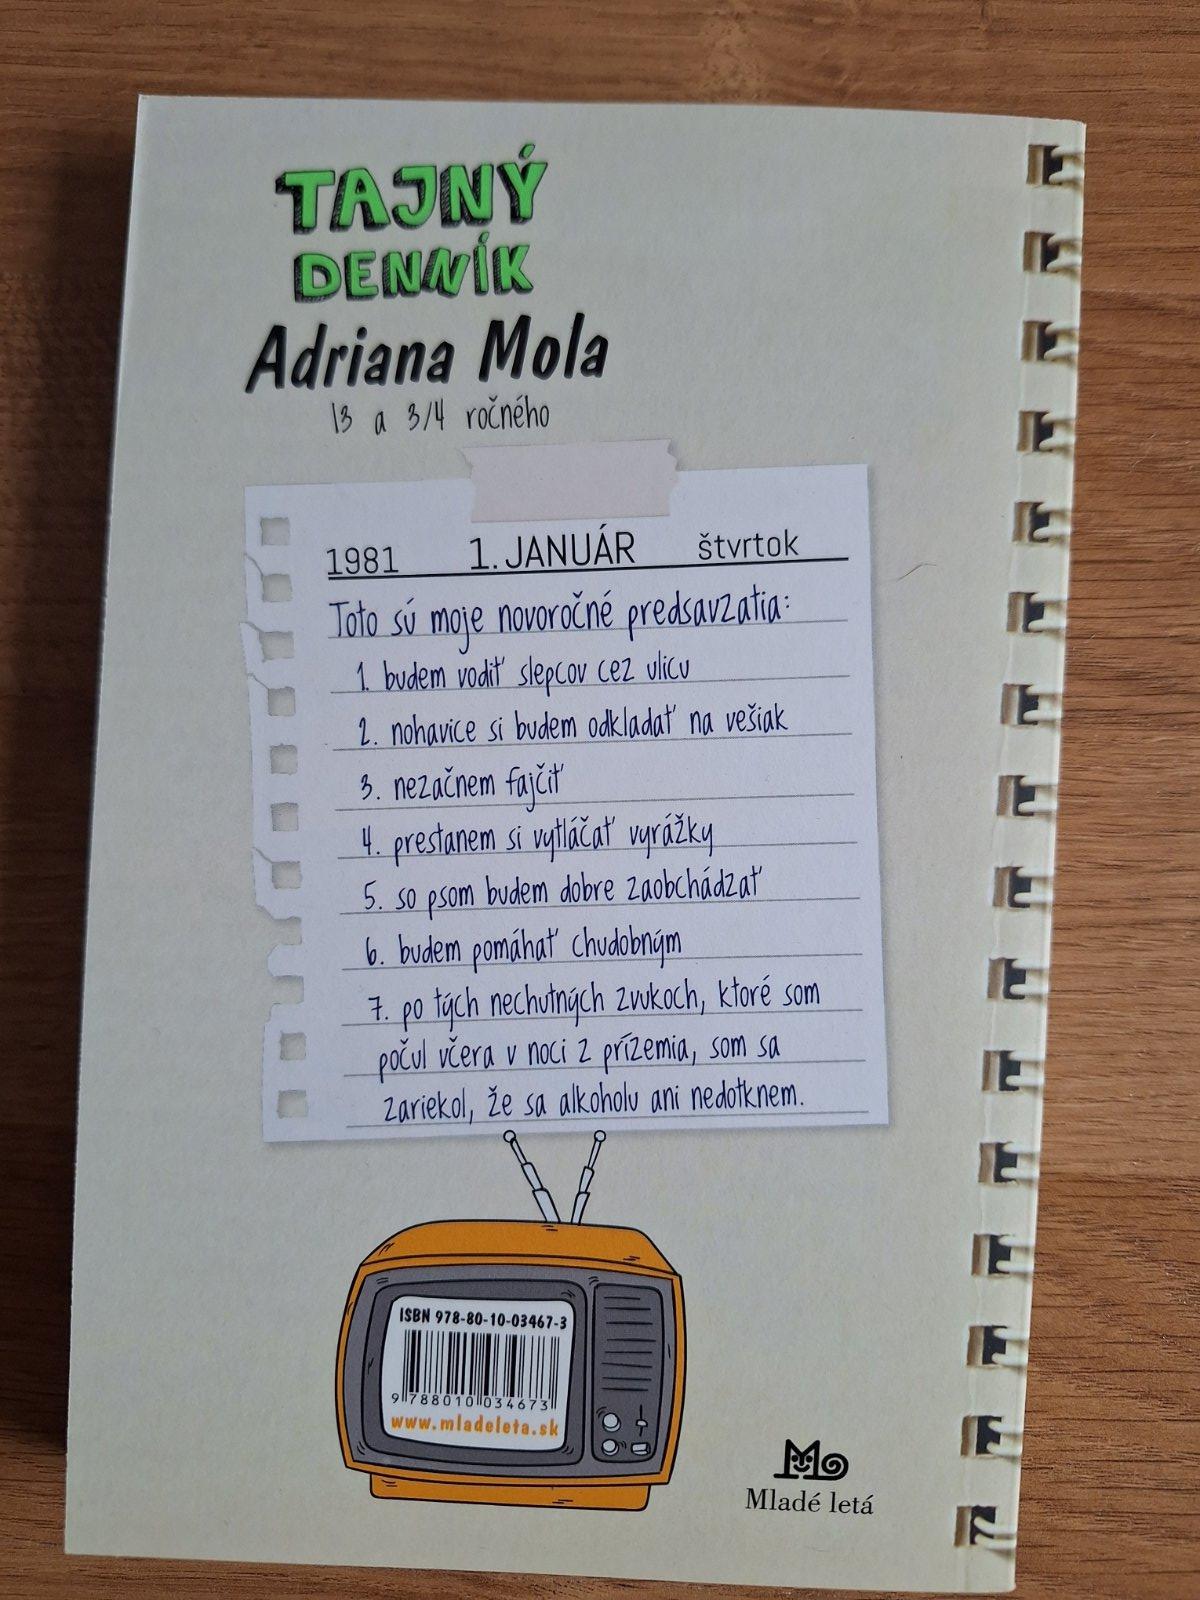 TAJNÝ
DENNÍK
Adriana Mola
13 a 3/4 ročného
1981 1. JANUÁR štvrtok
Toto sú moje novoročné predsavzatia:
1. budem vodiť slepcov cez ulicu
2. nohavice si budem odkladať na vešiak
3. nezačnem fajčiť
4. prestanem si vytláčať vyrážky
5. so psom budem dobre zaobchádzať
6. budem pomáhať chudobným
7. po tých nechutných zvukoch, ktoré som
počul včera v noci z prízemia, som sa
zariekol, že sa alkoholu ani nedotknem.
ISBN 978-80-10-03467-3
9 788010 034673
www.mladeleta.sk
Mladé letá